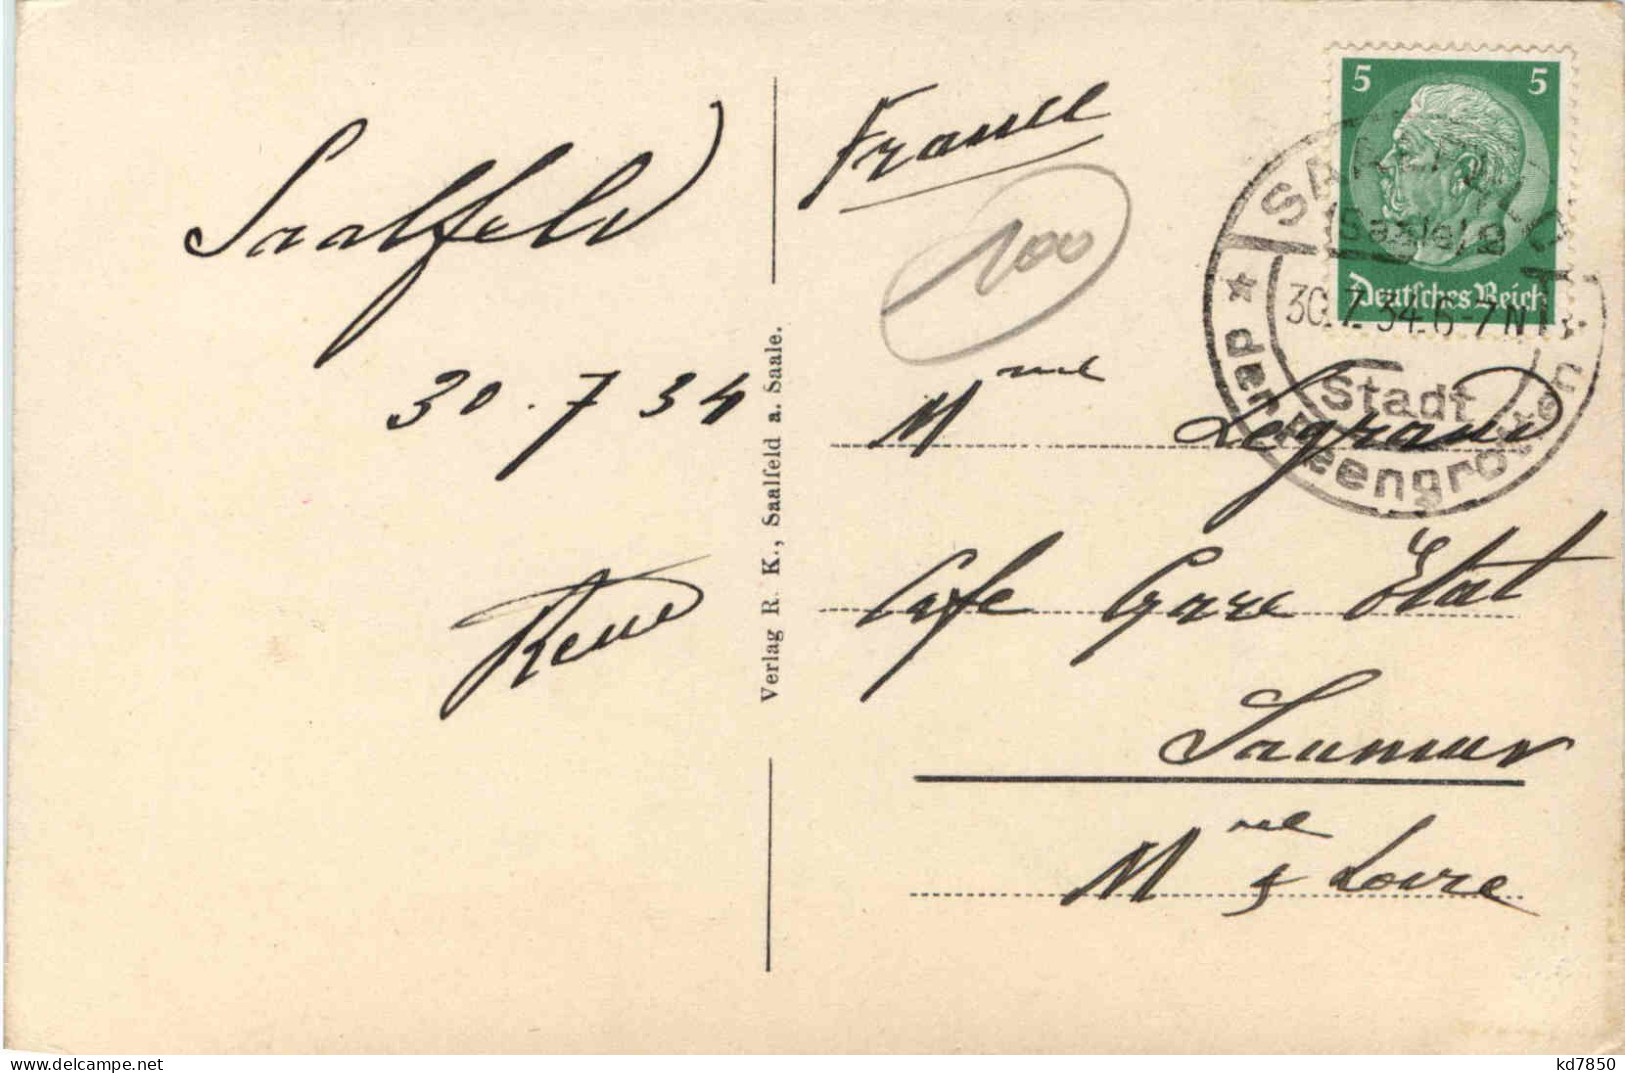 Saalfeld
30.7 34
René
Verlag R. K., Saalfeld a. Saale.
France
100
5 5
Deutsches Reich
SAALFELD
(Saale) 2
30.7.34.6-7N
Stadt
der Feengrotten
Mme Legrand
Café Gare Etat
Saumur
Mne & Loire
delcampe.net
kd7850